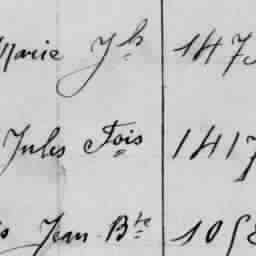 Marie Jh 147
Jules Fois 1417
Jean Bte 105